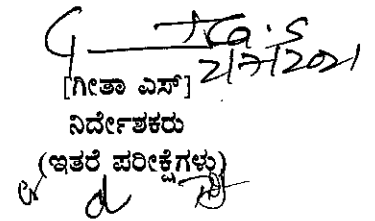 2/7/2021
[ಗೀತಾ ಎಸ್]
ನಿರ್ದೇಶಕರು
(ಇತರೆ ಪರೀಕ್ಷೆಗಳು)